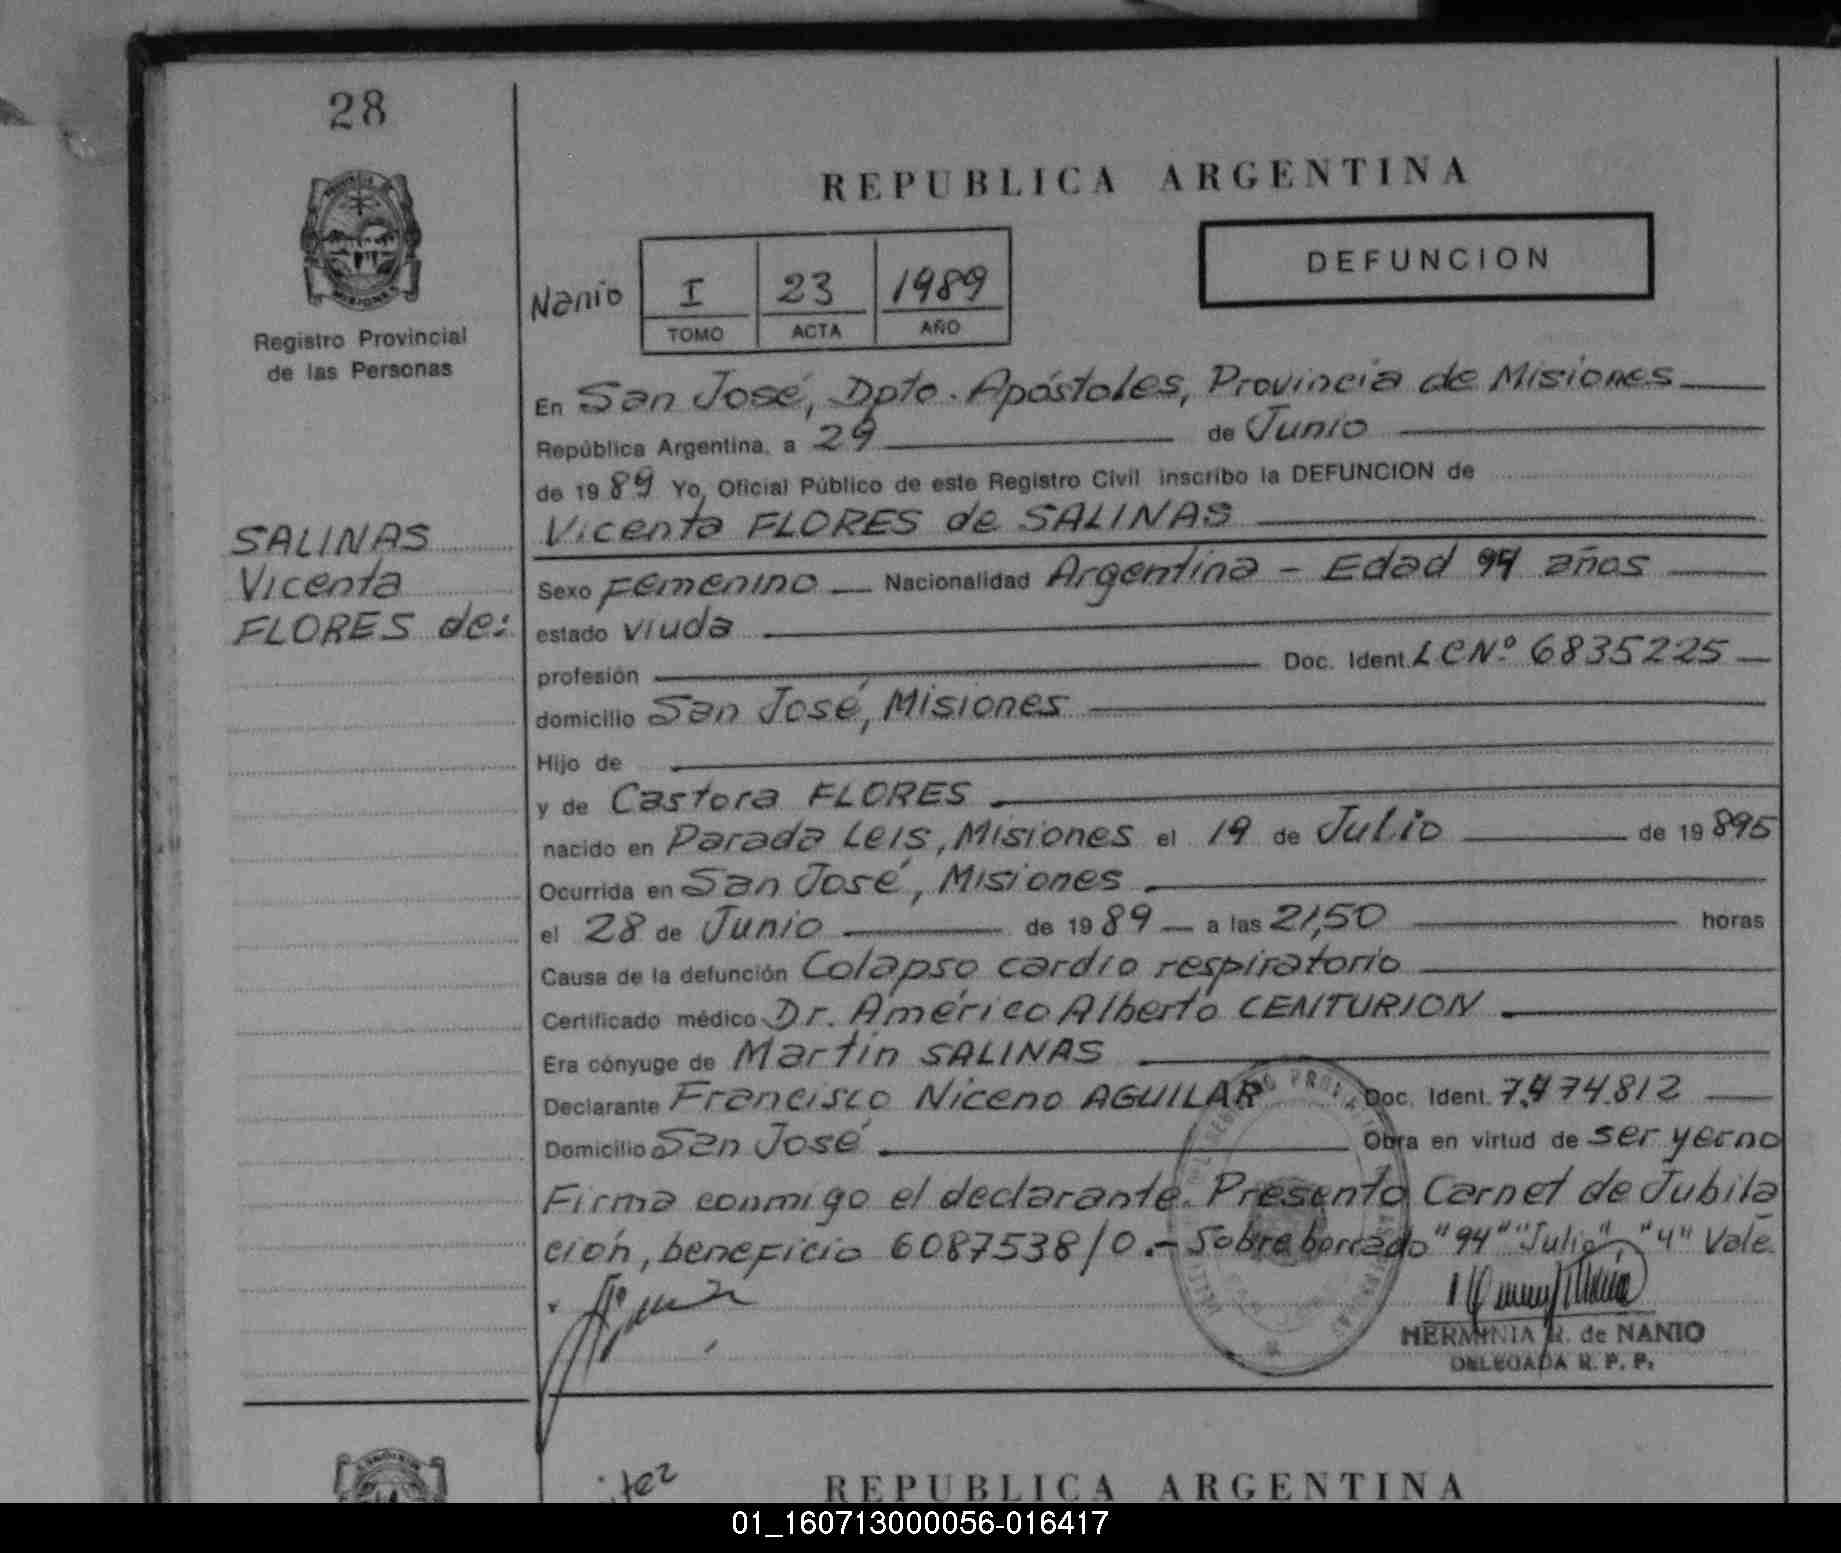 28
REPUBLICA ARGENTINA
DEFUNCION
MISIONES
Registro Provincial
de las Personas
Nanio
I 23 1989
TOMO ACTA AÑO
En San José, Dpto. Apóstoles, Provincia de Misiones
República Argentina, a 29 de Junio
de 1989 Yo, Oficial Público de este Registro Civil inscribo la DEFUNCION de
Vicenta FLORES de SALINAS
SALINAS
Vicenta
FLORES de:
Sexo Femenino Nacionalidad Argentina - Edad 94 años
estado viuda
profesión Doc. Ident. LCNº 6835225
domicilio San José, Misiones
Hijo de
y de Castora FLORES
nacido en Parada Leis, Misiones el 19 de Julio de 19 895
Ocurrida en San José, Misiones
el 28 de Junio de 1989 a las 21,50 horas
Causa de la defunción Colapso cardio respiratorio
Certificado médico Dr. Américo Alberto CENTURION
Era cónyuge de Martin SALINAS
Declarante Francisco Niceno AGUILAR Doc. Ident. 7.474.812
Domicilio San José Obra en virtud de ser yerno
Firma conmigo el declarante. Presento Carnet de Jubila
ción, beneficio 6087538/0.- Sobre borrado "94" "Julio", "4" Vale.
HERMINIA R. de NANIO
DELEGADA R. P. P.
REPUBLICA ARGENTINA
01_160713000056-016417